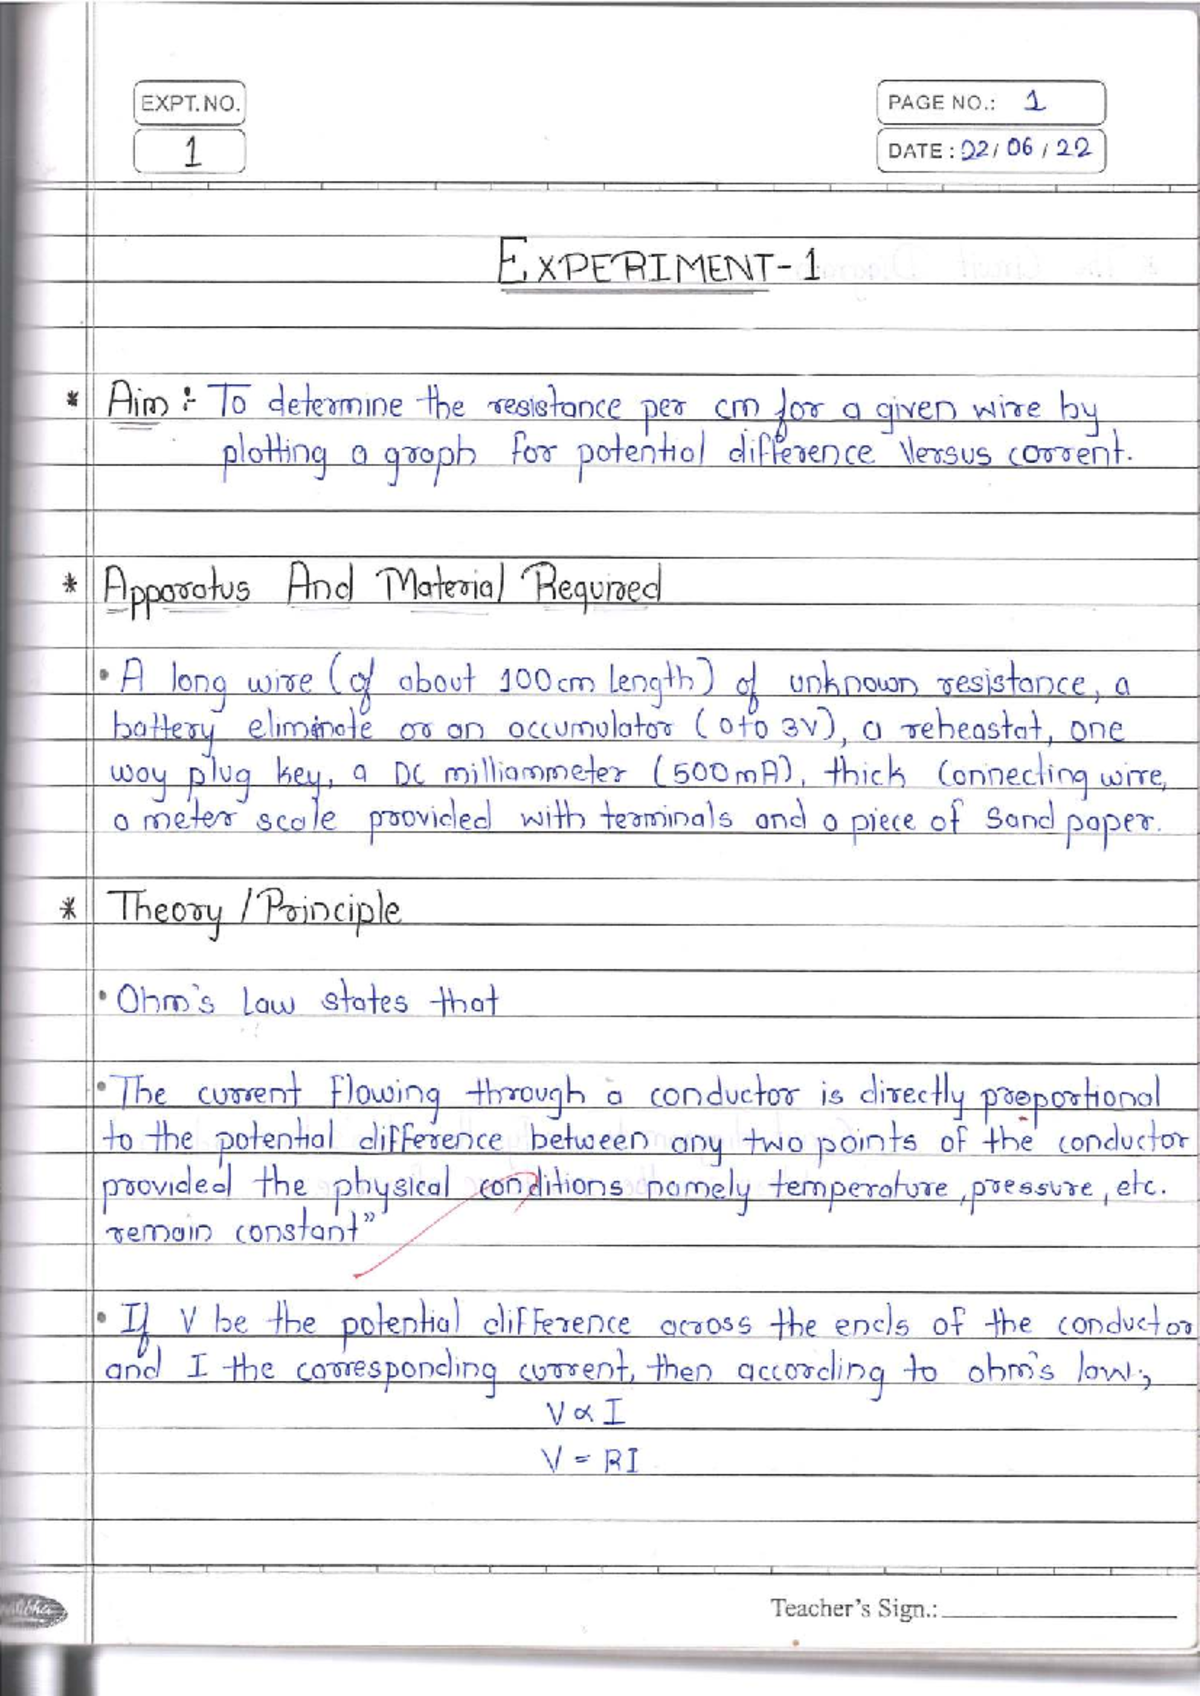 EXPT. NO.
1
PAGE NO.: 1
DATE : 02/06/22
EXPERIMENT-1
* Aim :- To determine the resistance per cm for a given wire by
plotting a graph for potential difference Versus corrent.
* Apparatus And Material Required
• A long wire (of about 100cm length) of unknown resistance, a
battery eliminate or an accumulator (0to 3V), a reheastat, one
way plug key, a DC milliammeter (500mA), thick connecting wire,
a meter scale provided with terminals and a piece of Sand paper.
* Theory / Principle
• Ohm's Law states that
• The current flowing through a conductor is directly proportional
to the potential difference between any two points of the conductor
provided the physical conditions namely temperature, pressure, etc.
remain constant”
• If V be the potential difference across the ends of the conductor
and I the corresponding current, then according to ohm's law;
V ∝ I
V = RI
Teacher's Sign.: